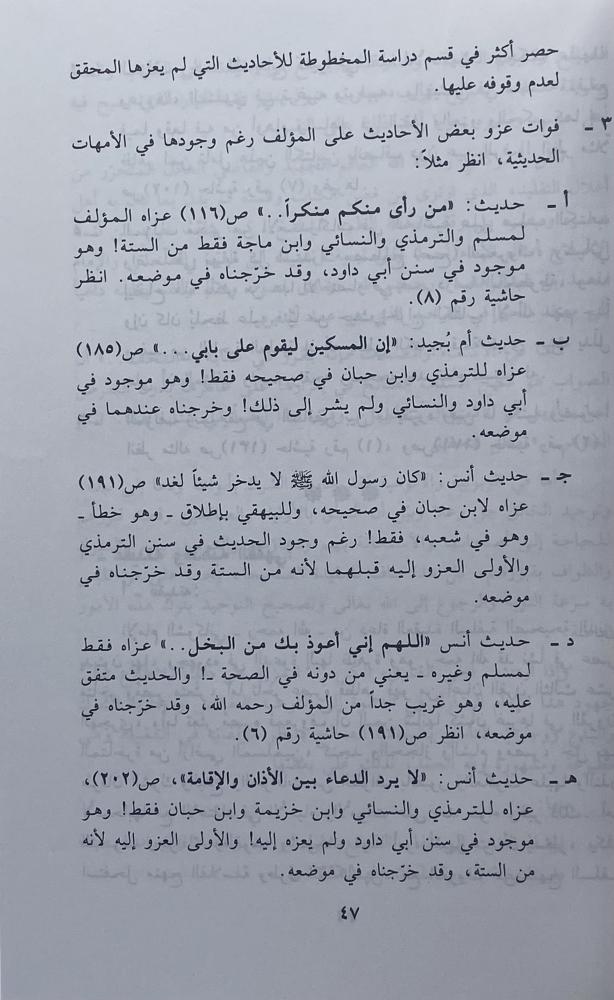 حصر أكثر في قسم دراسة المخطوطة للأحاديث التي لم يعزها المحقق
لعدم وقوفه عليها.
٣ ـ فوات عزو بعض الأحاديث على المؤلف رغم وجودها في الأمهات
الحديثية، انظر مثلاً:
أ ـ حديث: «من رأى منكم منكراً..» ص(١١٦) عزاه المؤلف
لمسلم والترمذي والنسائي وابن ماجة فقط من الستة! وهو
موجود في سنن أبي داود، وقد خرّجناه في موضعه. انظر
حاشية رقم (٨).
ب ـ حديث أم بُجيد: «إن المسكين ليقوم على بابي...» ص(١٨٥)
عزاه للترمذي وابن حبان في صحيحه فقط! وهو موجود في
أبي داود والنسائي ولم يشر إلى ذلك! وخرجناه عندهما في
موضعه.
جـ ـ حديث أنس: «كان رسول الله ﷺ لا يدخر شيئاً لغد» ص(١٩١)
عزاه لابن حبان في صحيحه، وللبيهقي بإطلاق ـ وهو خطأ ـ
وهو في شعبه، فقط! رغم وجود الحديث في سنن الترمذي
والأولى العزو إليه قبلهما لأنه من الستة وقد خرّجناه في
موضعه.
د ـ حديث أنس «اللهم إني أعوذ بك من البخل..» عزاه فقط
لمسلم وغيره ـ يعني من دونه في الصحة ـ! والحديث متفق
عليه، وهو غريب جداً من المؤلف رحمه الله، وقد خرّجناه في
موضعه، انظر ص(١٩١) حاشية رقم (٦).
هـ ـ حديث أنس: «لا يرد الدعاء بين الأذان والإقامة»، ص(٢٠٢)،
عزاه للترمذي والنسائي وابن خزيمة وابن حبان فقط! وهو
موجود في سنن أبي داود ولم يعزه إليه! والأولى العزو إليه لأنه
من الستة، وقد خرّجناه في موضعه.
٤٧